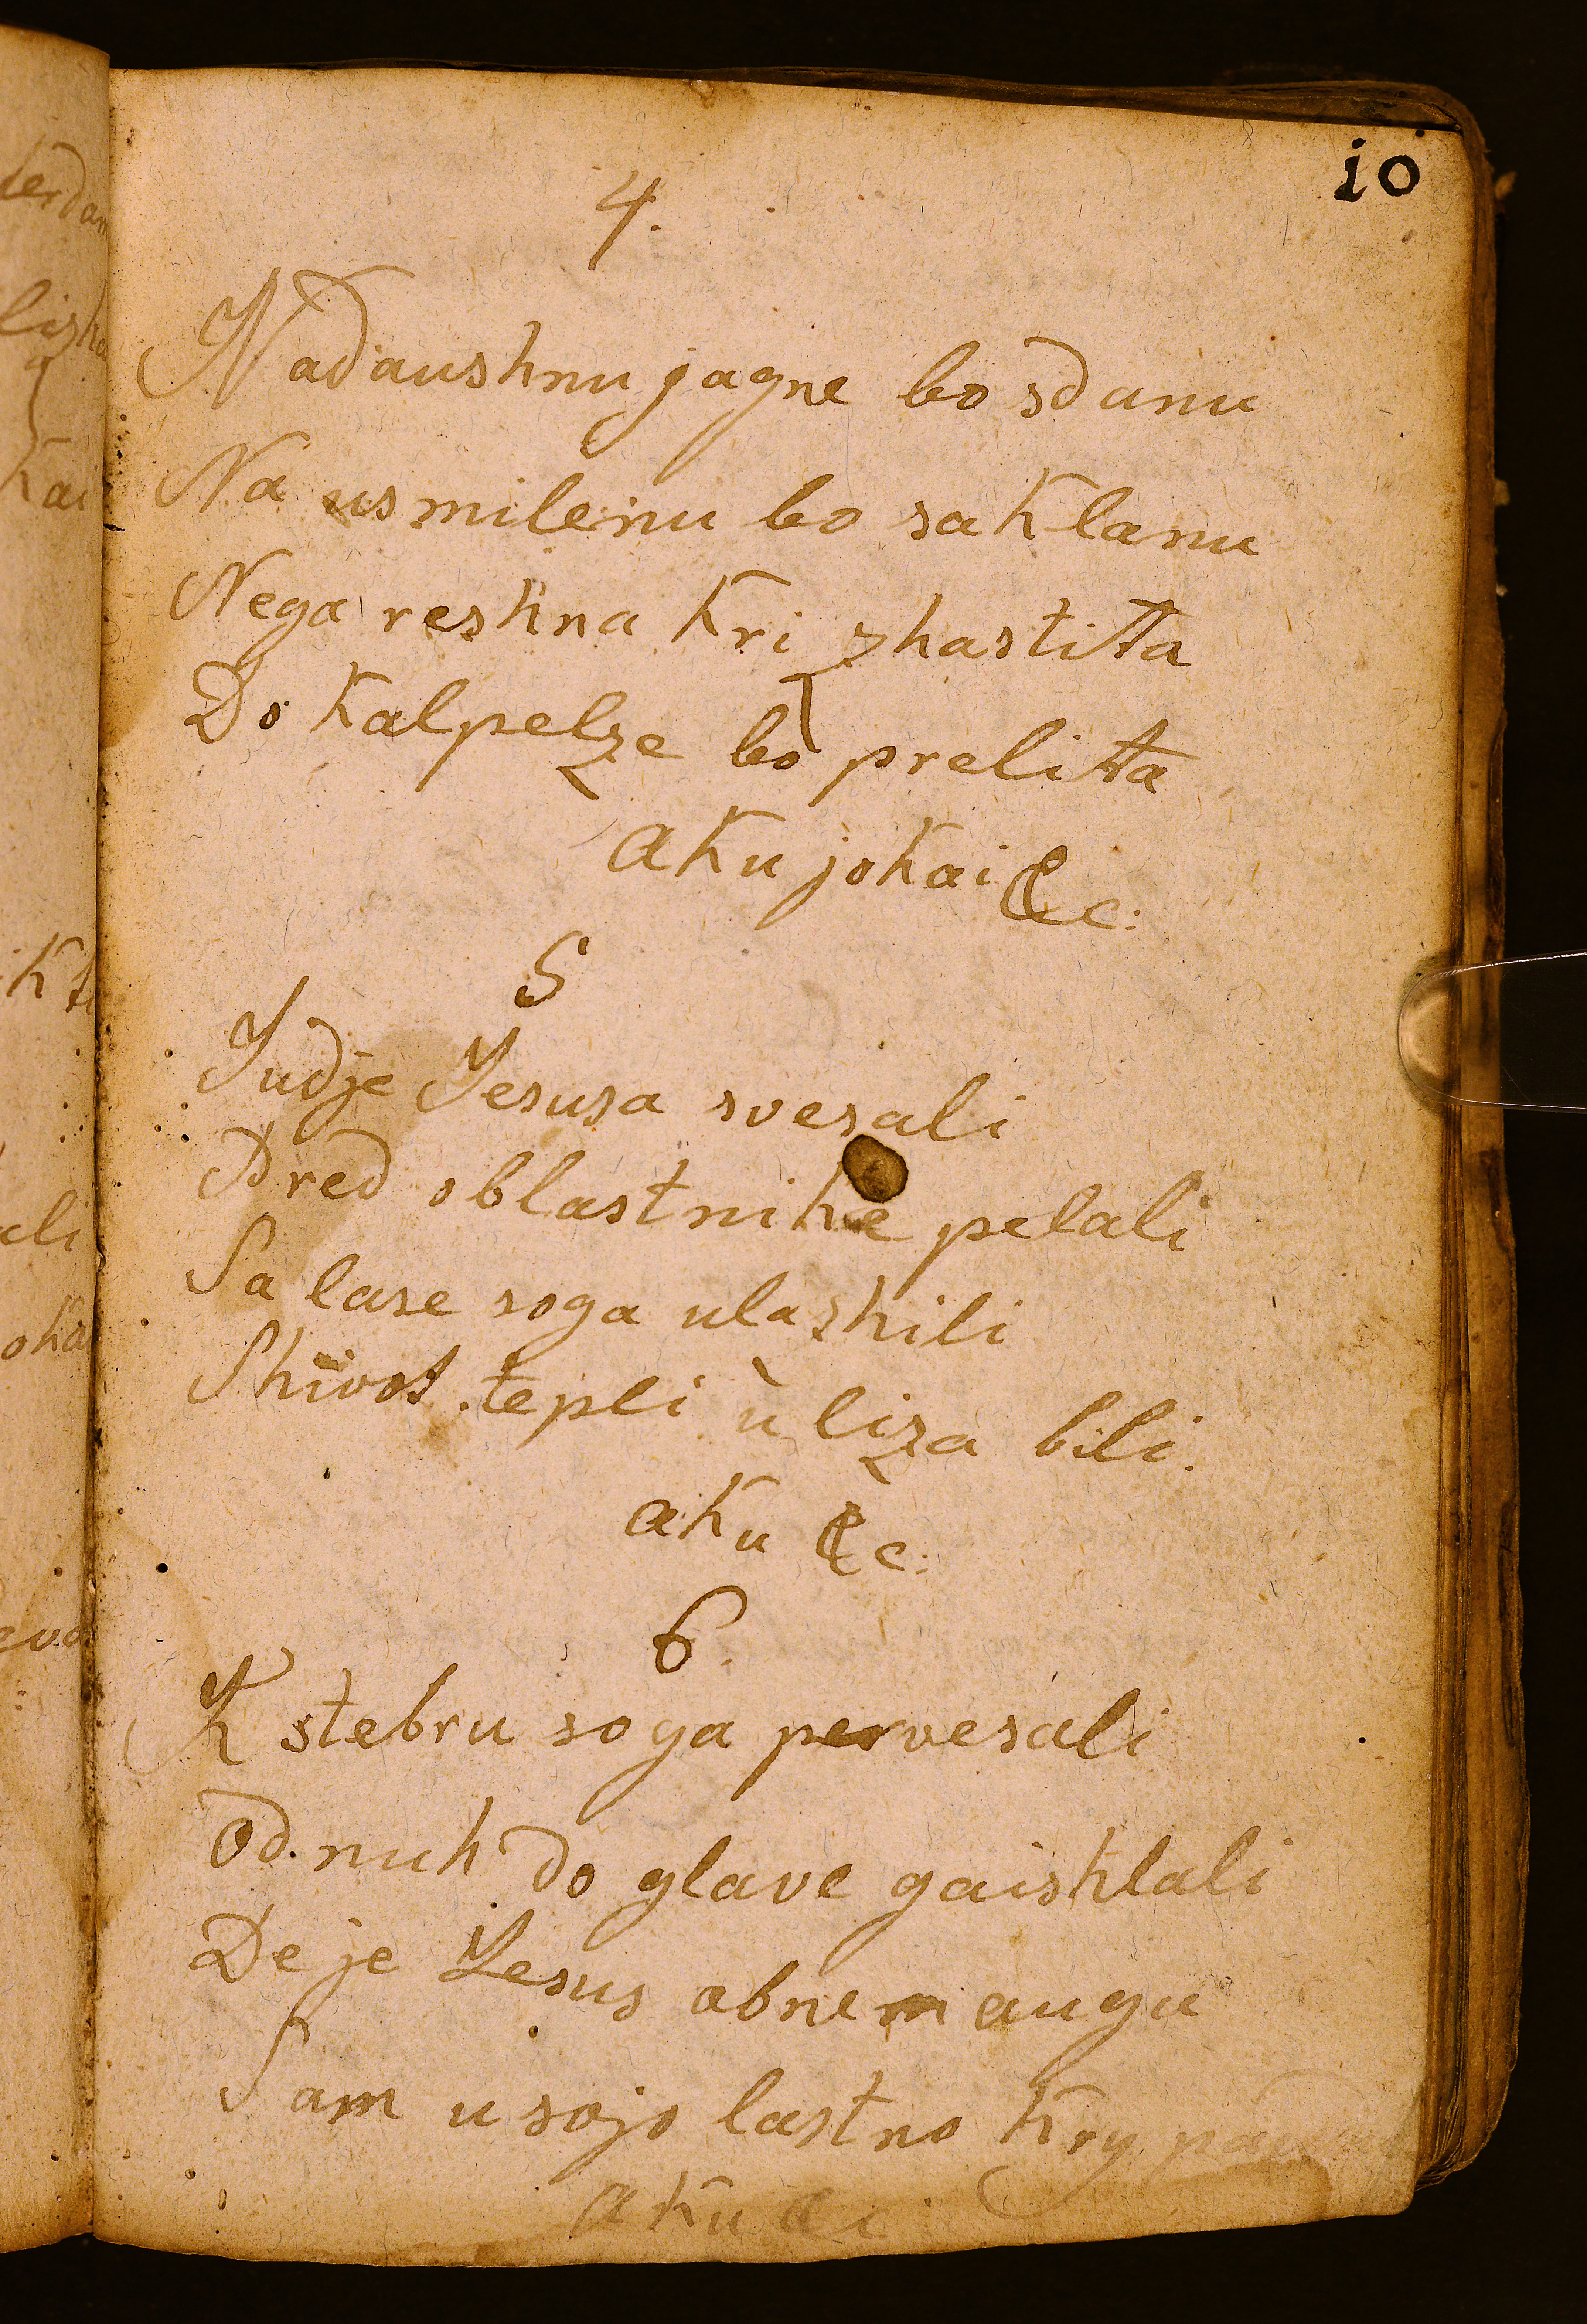 10
4.
Nadaushnu jagne bo sdanu
Na usmilenu bo saklanu
Nega reshna kri zhastitta
Do kalpelze bo prelitta
aku jokai &c:
5
Judje Jesusa svesali
Pred oblastnike pelali
Sa lase soga ulazhili
Shivot tepli u liza bili.
aku &c:
6.
K stebru soga pervesali
Od nuh do glave gaishlali
De je Jesus abnemaugu
Sam usojo lastno kry
aku &c